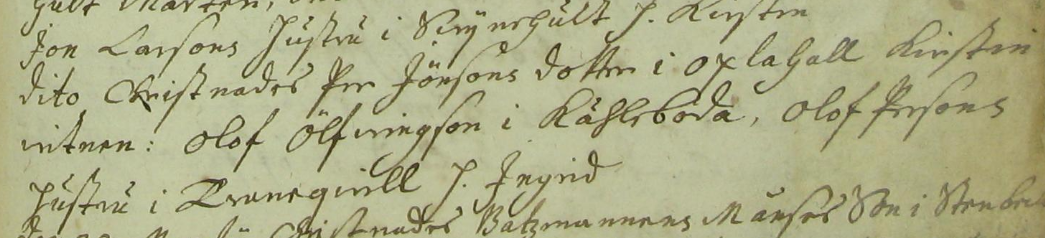 Jon Larsons Hustru i Skynehult H. Kirstin
dito Christnades Per Jönsons dotter i Oxlahall Kirstin
vitnen: Olof Ölfwingson i Kåhleboda, Olof Persons
Hustru i Tranequill H. Ingrid
Christnades Båtzmannens Månses Son i